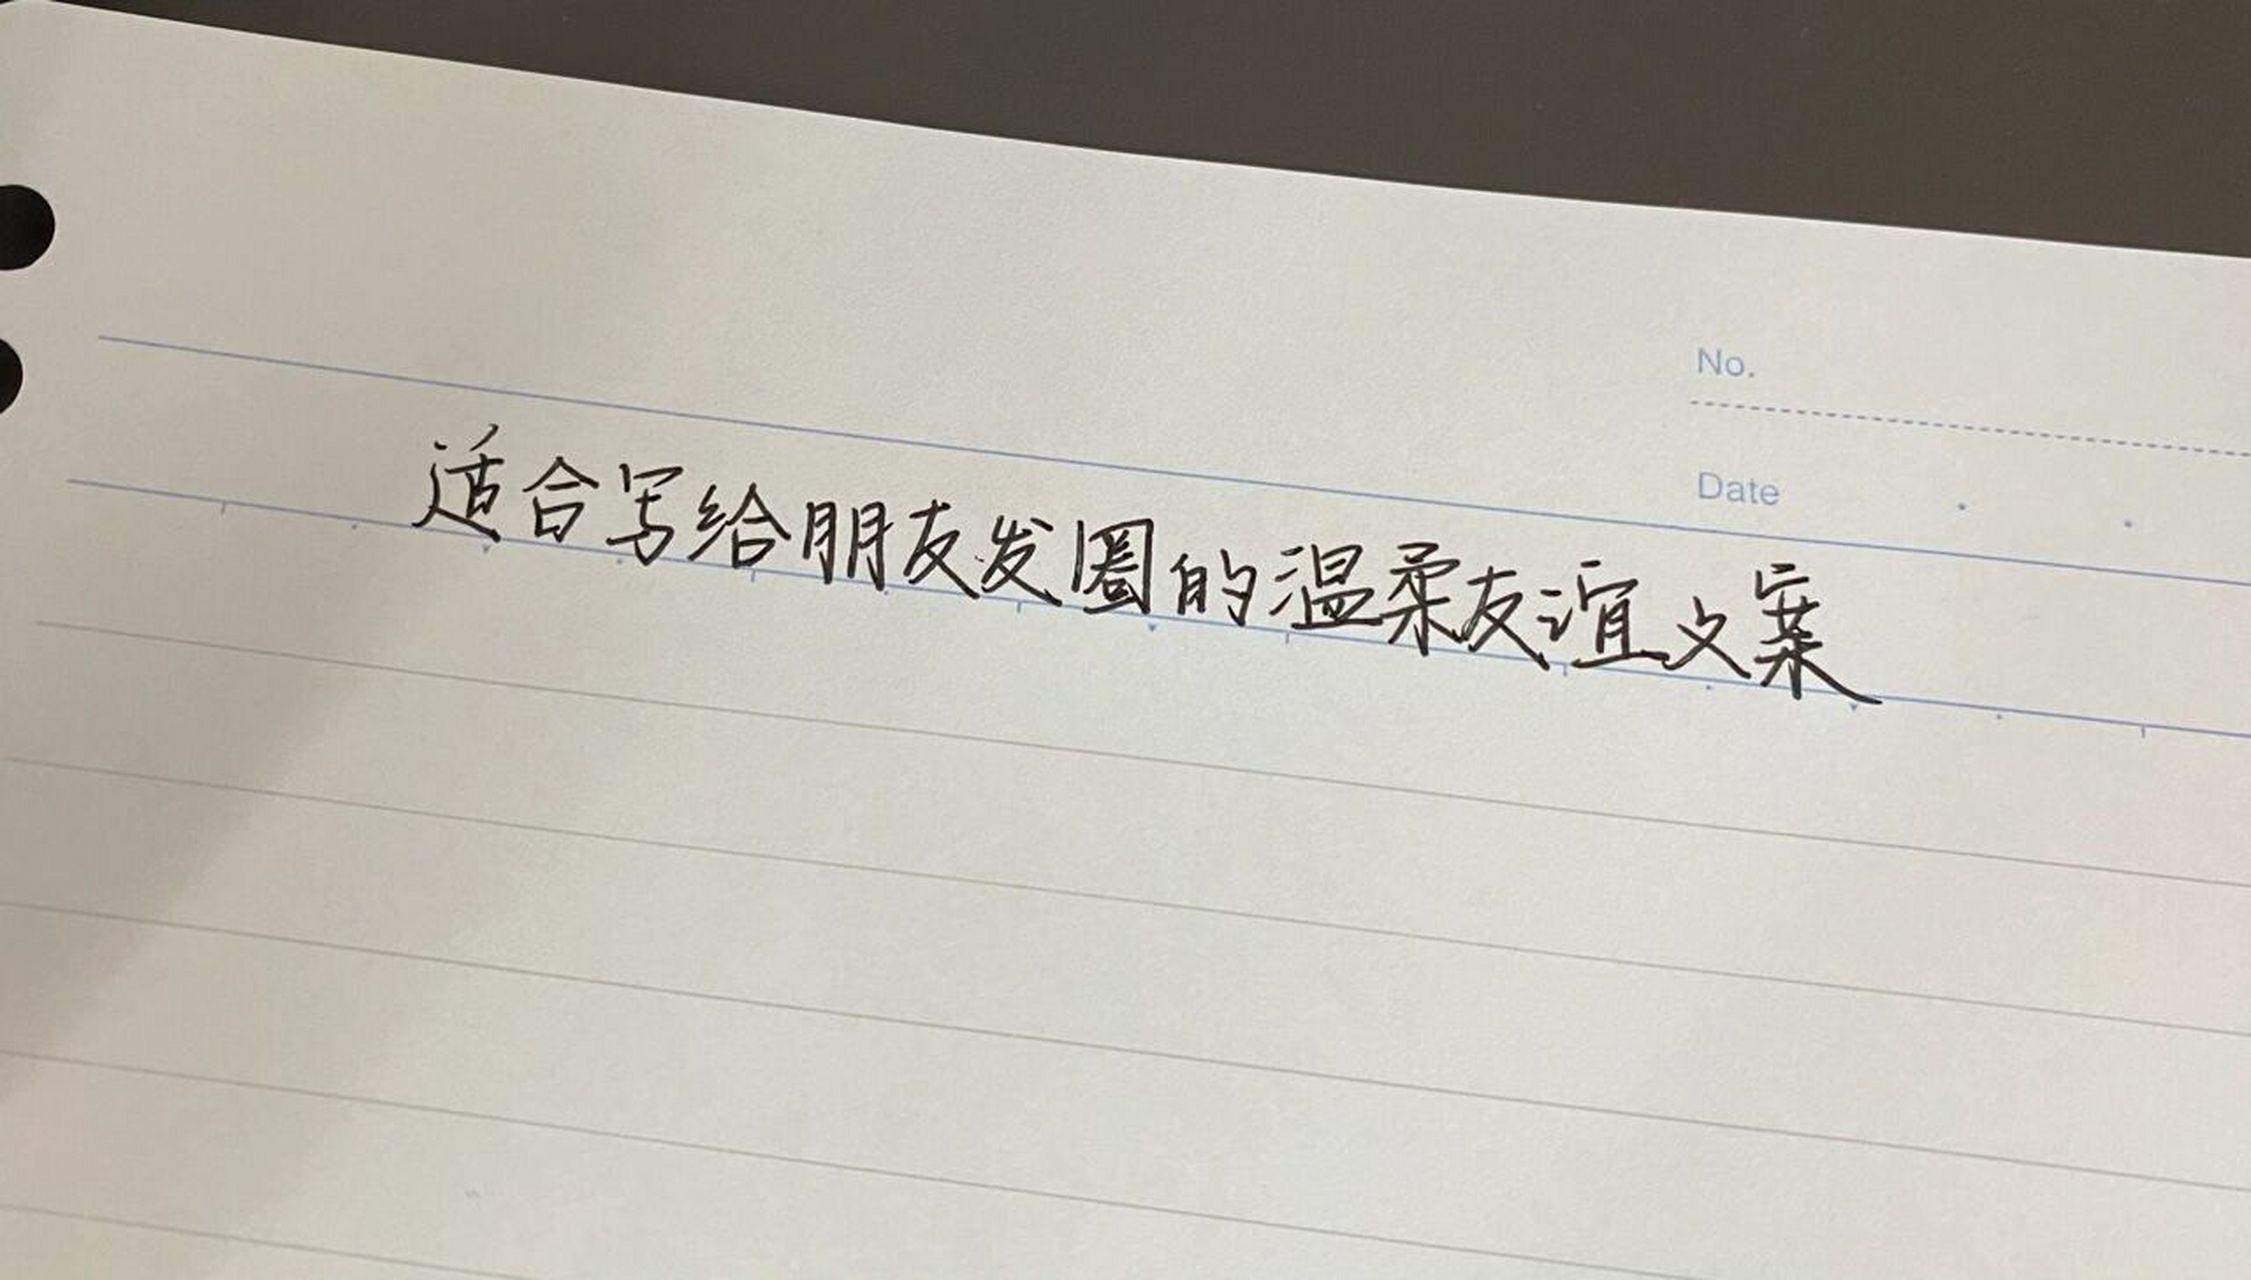 No.
Date
适合写给朋友发圈的温柔友谊文案